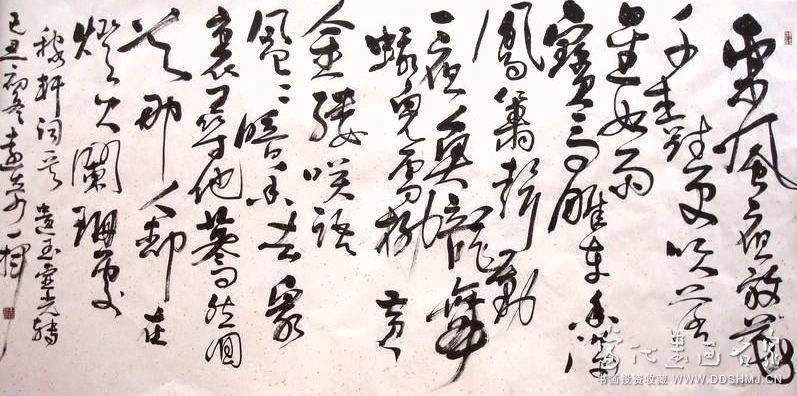 東風夜放花
千樹更吹落
星如雨
寶馬雕車香滿路
鳳簫聲動
一夜魚龍舞
蛾兒雪柳黃
金縷笑語
盈盈暗香去眾
裏尋他驀然回
首那人卻在
燈火闌珊處
稼軒詞 遺玉壺光轉
己丑初冬 一揮
当代书画名家
书画投资收藏 WWW.DDSHMJ.CN